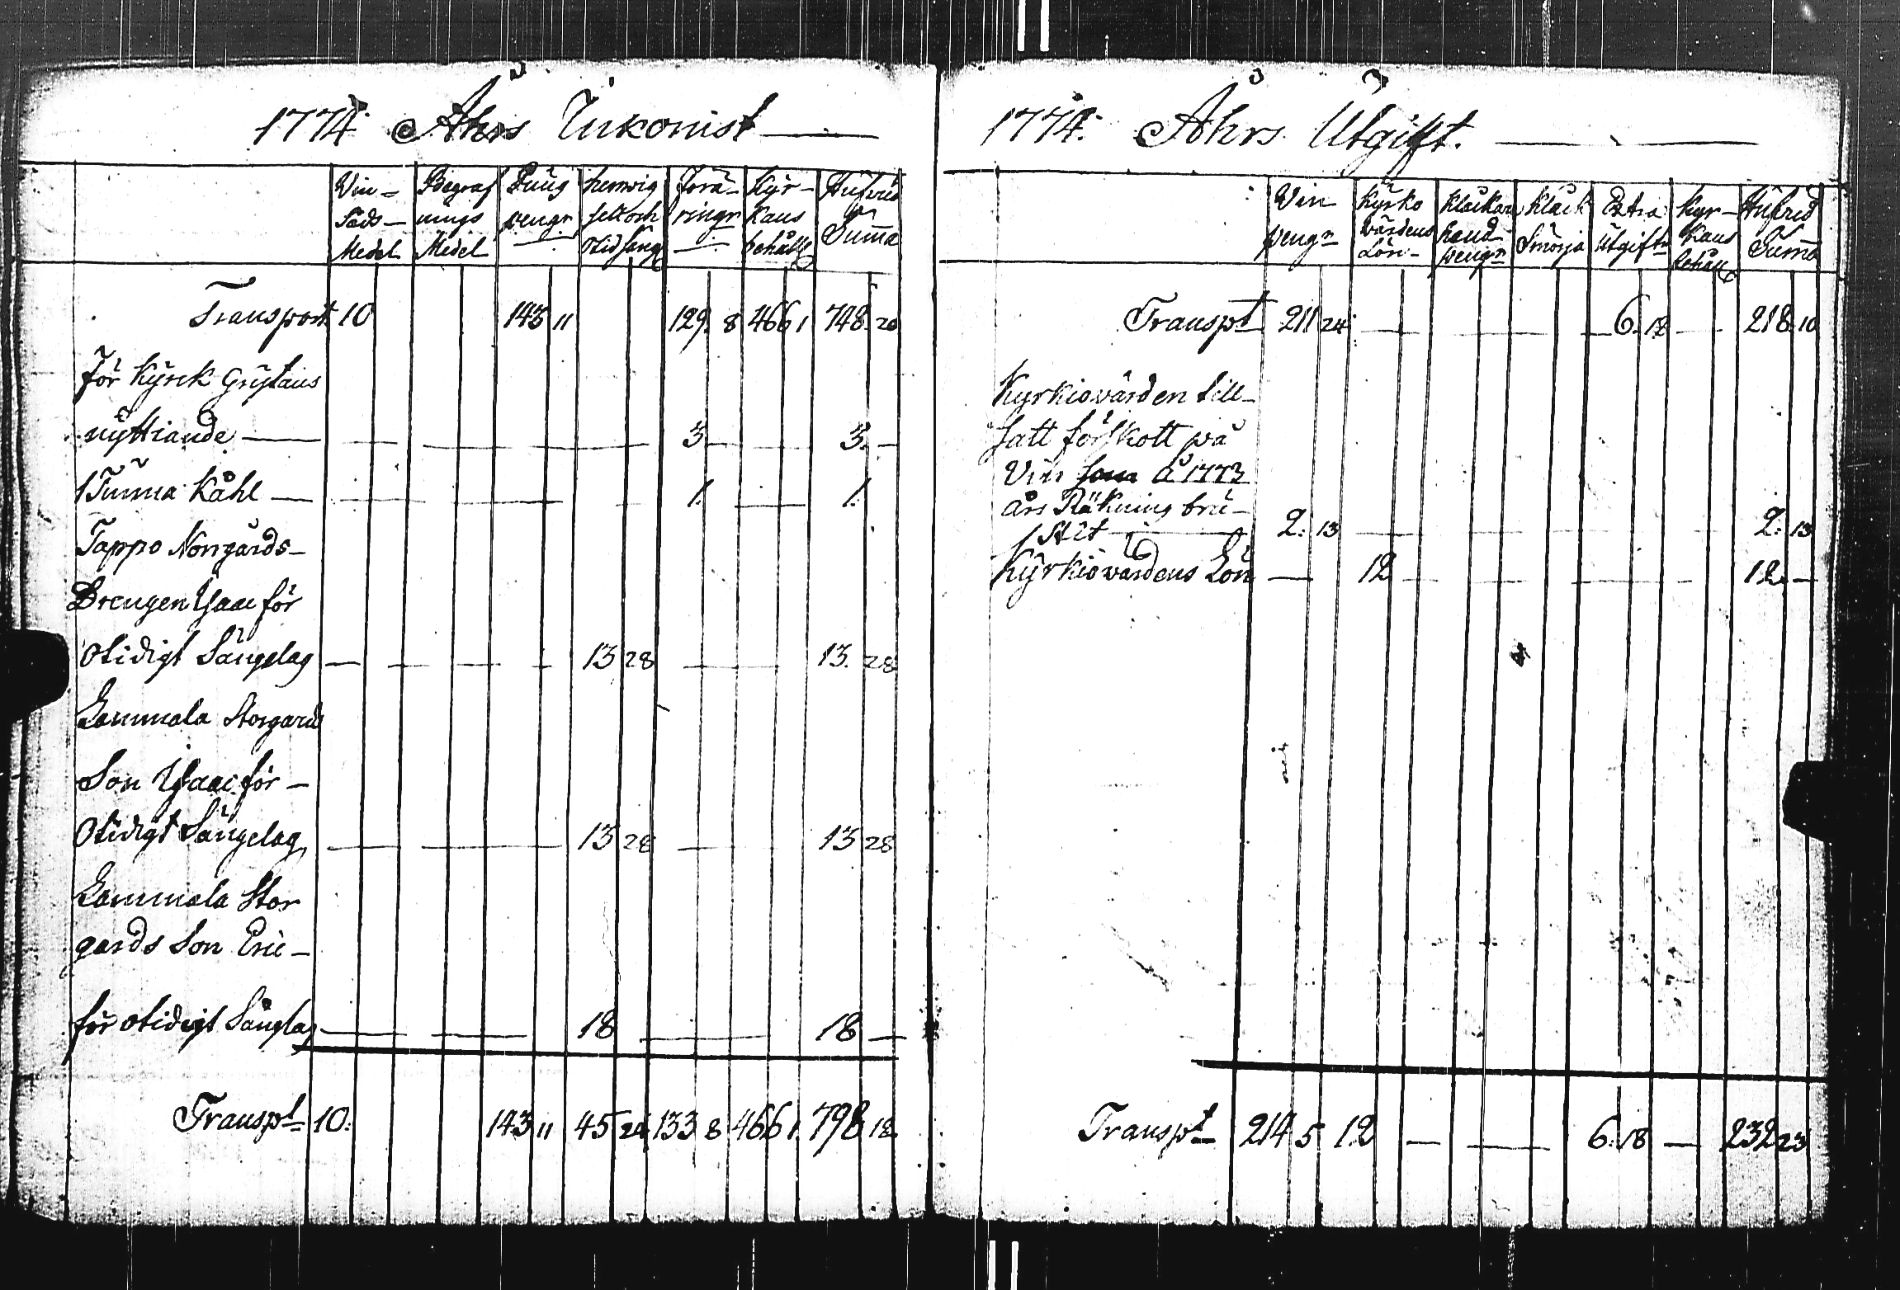 1774 Åhrs Inkomst
Vin-
Säds-
Medel
Begraf
nings
Medel
Pung
pengr
hemvig
sell och
otid säng
Förä-
ringr
Kyr-
Kans
behåll
Hufvud
Summa
Transport 10 143 11 129. 8 466 1 748. 20
För Kyrck Grytans
nyttiande 3 3.
1 Tunna Kåhl 1. 1.
Tappo Norrgårds
Drengen Isaac för
Otidigt Sängelag 13 28 13. 28
Gammala Storgards
Son Isaac för
Otidigt Sängelag 13 28 13 28
Gammala Stor
gards Son Eric
för otidigt Sänglag 18 18
Transpt 10: 143 11 45 24 133 8 466 1. 798 18.
1774. Åhrs Utgift.
Vin
pengr
Kyrko
Värdens
Lön
Klåckar
hand
pengr
Klåck
Smörja
Extra
Utgiftr
Kyr-
Kans
behåll
Hufvud
Summa
Transpt 211 24 6. 18 218. 10
Kyrkiovärden till-
satt förskott på
Vin som å 1773
års Räkning bru-
stit 2: 13 2: 13
Kyrkiovärdens Lön 12 12.
Transpt 214 5 12 6. 18 232 23